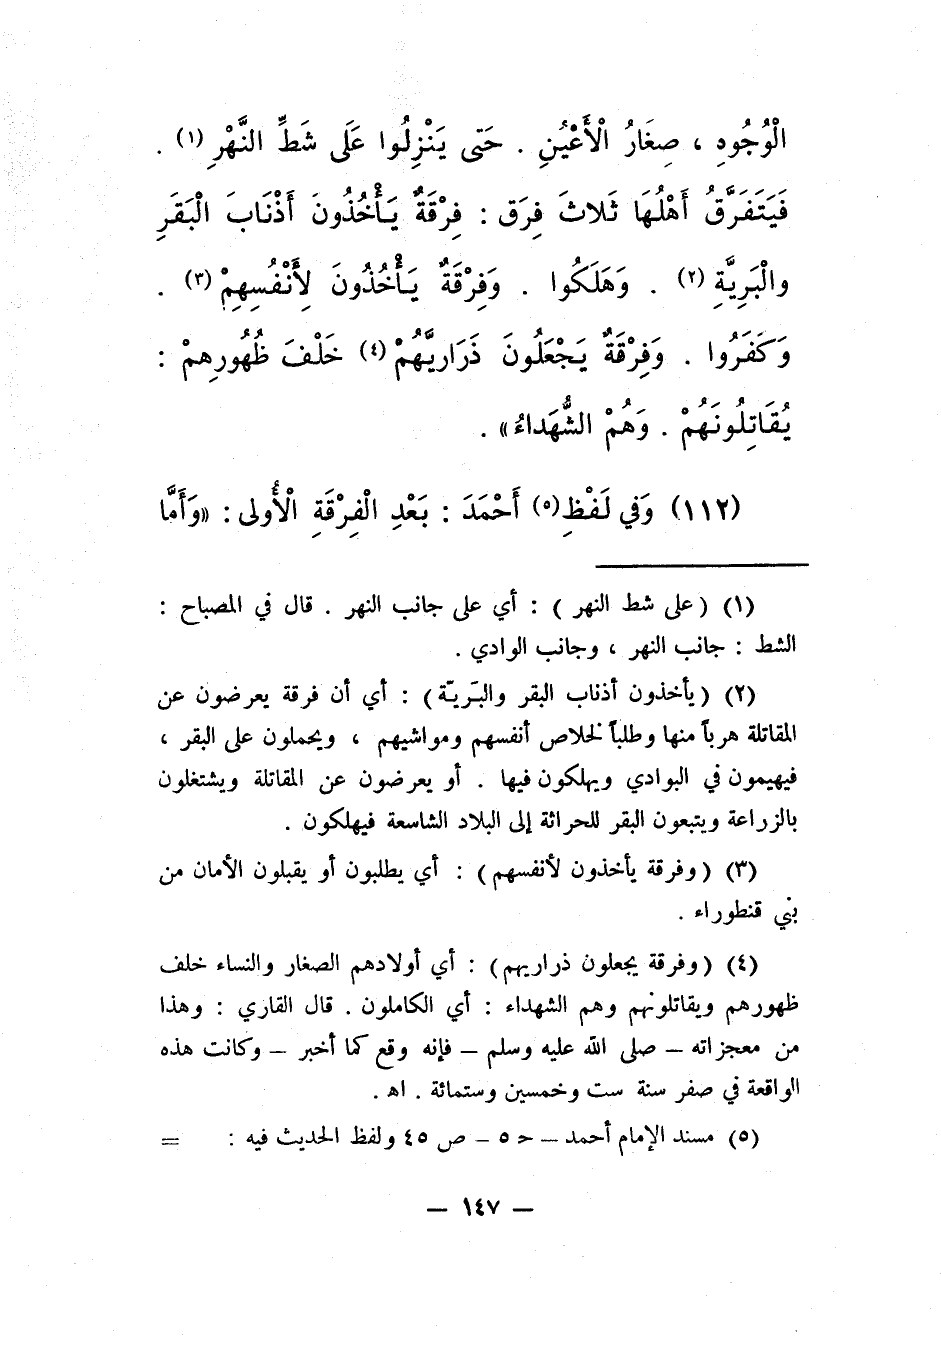 الْوُجُوهِ ، صِغَارُ الْأَعْيُنِ . حَتى يَنْزِلُوا عَلَى شَطِّ النَّهْرِ (١) .
فَيَتَفَرَّقُ أَهْلُهَا ثَلاثَ فِرَق : فِرْقَةٌ يَأْخُذُونَ أَذْنَابَ الْبَقَرِ
والْبَرِيَّةِ (٢) . وَهَلَكُوا . وَفِرْقَةٌ يَأْخُذُونَ لِأَنْفُسِهِمْ (٣) .
وَكَفَرُوا . وَفِرْقَةٌ يَجْعَلُونَ ذَرَاريَّهُمْ (٤) خَلْفَ ظُهُورِهمْ :
يُقَاتِلُونَهُمْ . وَهُمْ الشُّهَداءُ» .
(١١٢) وَفي لَفْظِ (٥) أَحْمَدَ : بَعْدِ الْفِرْقَةِ الْأُولى : «وَأَمَّا
(١) (على شط النهر ) : أي على جانب النهر . قال في المصباح :
الشط : جانب النهر ، وجانب الوادي .
(٢) (يأخذون أذناب البقر والبَريّة) : أي أن فرقة يعرضون عن
المقاتلة هرباً منها وطلباً لخلاص أنفسهم ومواشيهم ، ويحملون على البقر ،
فيهيمون في البوادي ويهلكون فيها . أو يعرضون عن المقاتلة ويشتغلون
بالزراعة ويتبعون البقر للحراثة إلى البلاد الشاسعة فيهلكون .
(٣) (وفرقة يأخذون لأنفسهم) : أي يطلبون أو يقبلون الأمان من
بني قنطوراء .
(٤) (وفرقة يجعلون ذراريهم) : أي أولادهم الصغار والنساء خلف
ظهورهم ويقاتلونهم وهم الشهداء : أي الكاملون . قال القاري : وهذا
من معجزاته – صلى الله عليه وسلم – فإنه وقع كما أخبر – وكانت هذه
الواقعة في صفر سنة ست وخمسين وستمائة . اه .
(٥) مسند الإمام أحمد – ح ٥ – ص ٤٥ ولفظ الحديث فيه : =
– ١٤٧ –